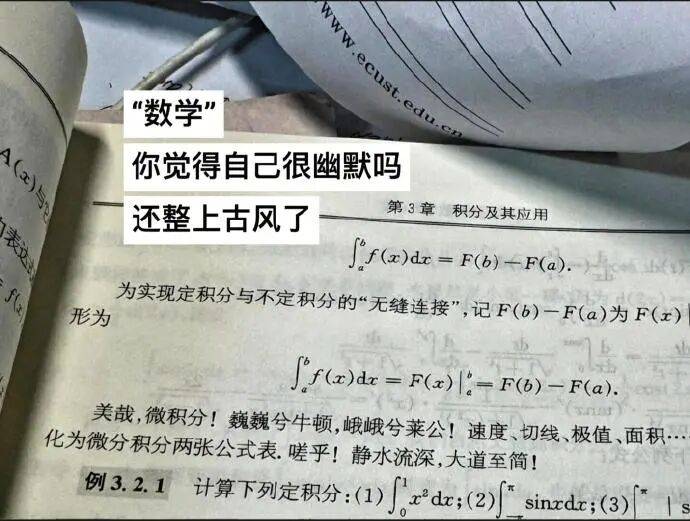 www.ecust.edu.cn
“数学”
你觉得自己很幽默吗
还整上古风了
A(x)与
的表达式
第3章 积分及其应用
∫_a^b f(x)dx = F(b)-F(a).
为实现定积分与不定积分的“无缝连接”,记F(b)-F(a)为F(x)|
形为
∫_a^b f(x)dx = F(x)|_a^b = F(b)-F(a).
美哉,微积分!巍巍兮牛顿,峨峨兮莱公!速度、切线、极值、面积…
化为微分积分两张公式表.嗟乎!静水流深,大道至简!
例3.2.1 计算下列定积分:(1)∫_0^1 x²dx;(2)∫^π sinxdx;(3)∫^π | s